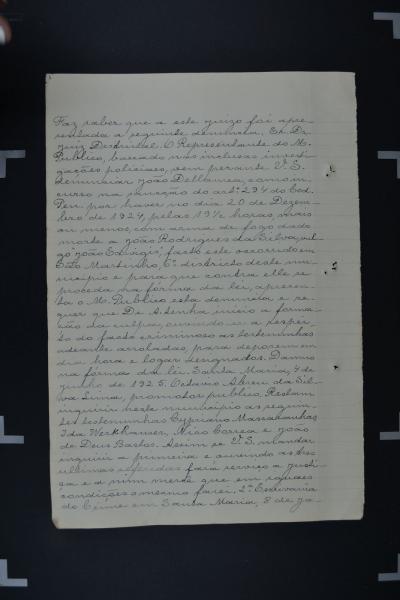 Faz saber que a este juizo foi apre-
sentada a seguinte denuncia. Ex. Dr.
Juiz Districtal. O Representante do M.
Publico, baseado nas inclusas investi-
gações policiaes, vem perante V. S.
denunciar João Dellamea, como in-
curso na sancção do art: 294 do Cod.
Pen. por haver no dia 20 de Dezem-
bro de 1924, pelas 19½ horas, mais
ou menos, com arma de fogo dado
morte a João Rodrigues da Silva, vul-
go João facto este occorrido em
São Martinho, 6º districto deste mu-
nicipio e para que contra elle se
proceda na fórma da lei, apresen-
ta o M. Publico esta denuncia e re-
quer que D. e A. tenha inicio a forma-
ção da culpa, ouvindo-se a respei-
to do facto criminoso as testemunhas
adeante arroladas, para deporem em
dia hora e logar designados. Damno
na fórma da lei. Santa Maria, 4 de
junho de 1925. Octavio Abreu da Sil-
va Lima, promotor publico. Restam
inquirir neste municipio as seguin-
tes testemunhas Cypriano Massalunhas
Ida Werkhauser, Nico Correa e João
de Deus Bastos. Assim se V. S. mandar
inquirir a primeira e ouvindo as tres
ultimas referidas fará serviço a justi-
ça e a mim mercê que em iguaes
condições o mesmo farei. 2º Escrivania
do Crime em Santa Maria, 8 de ja-